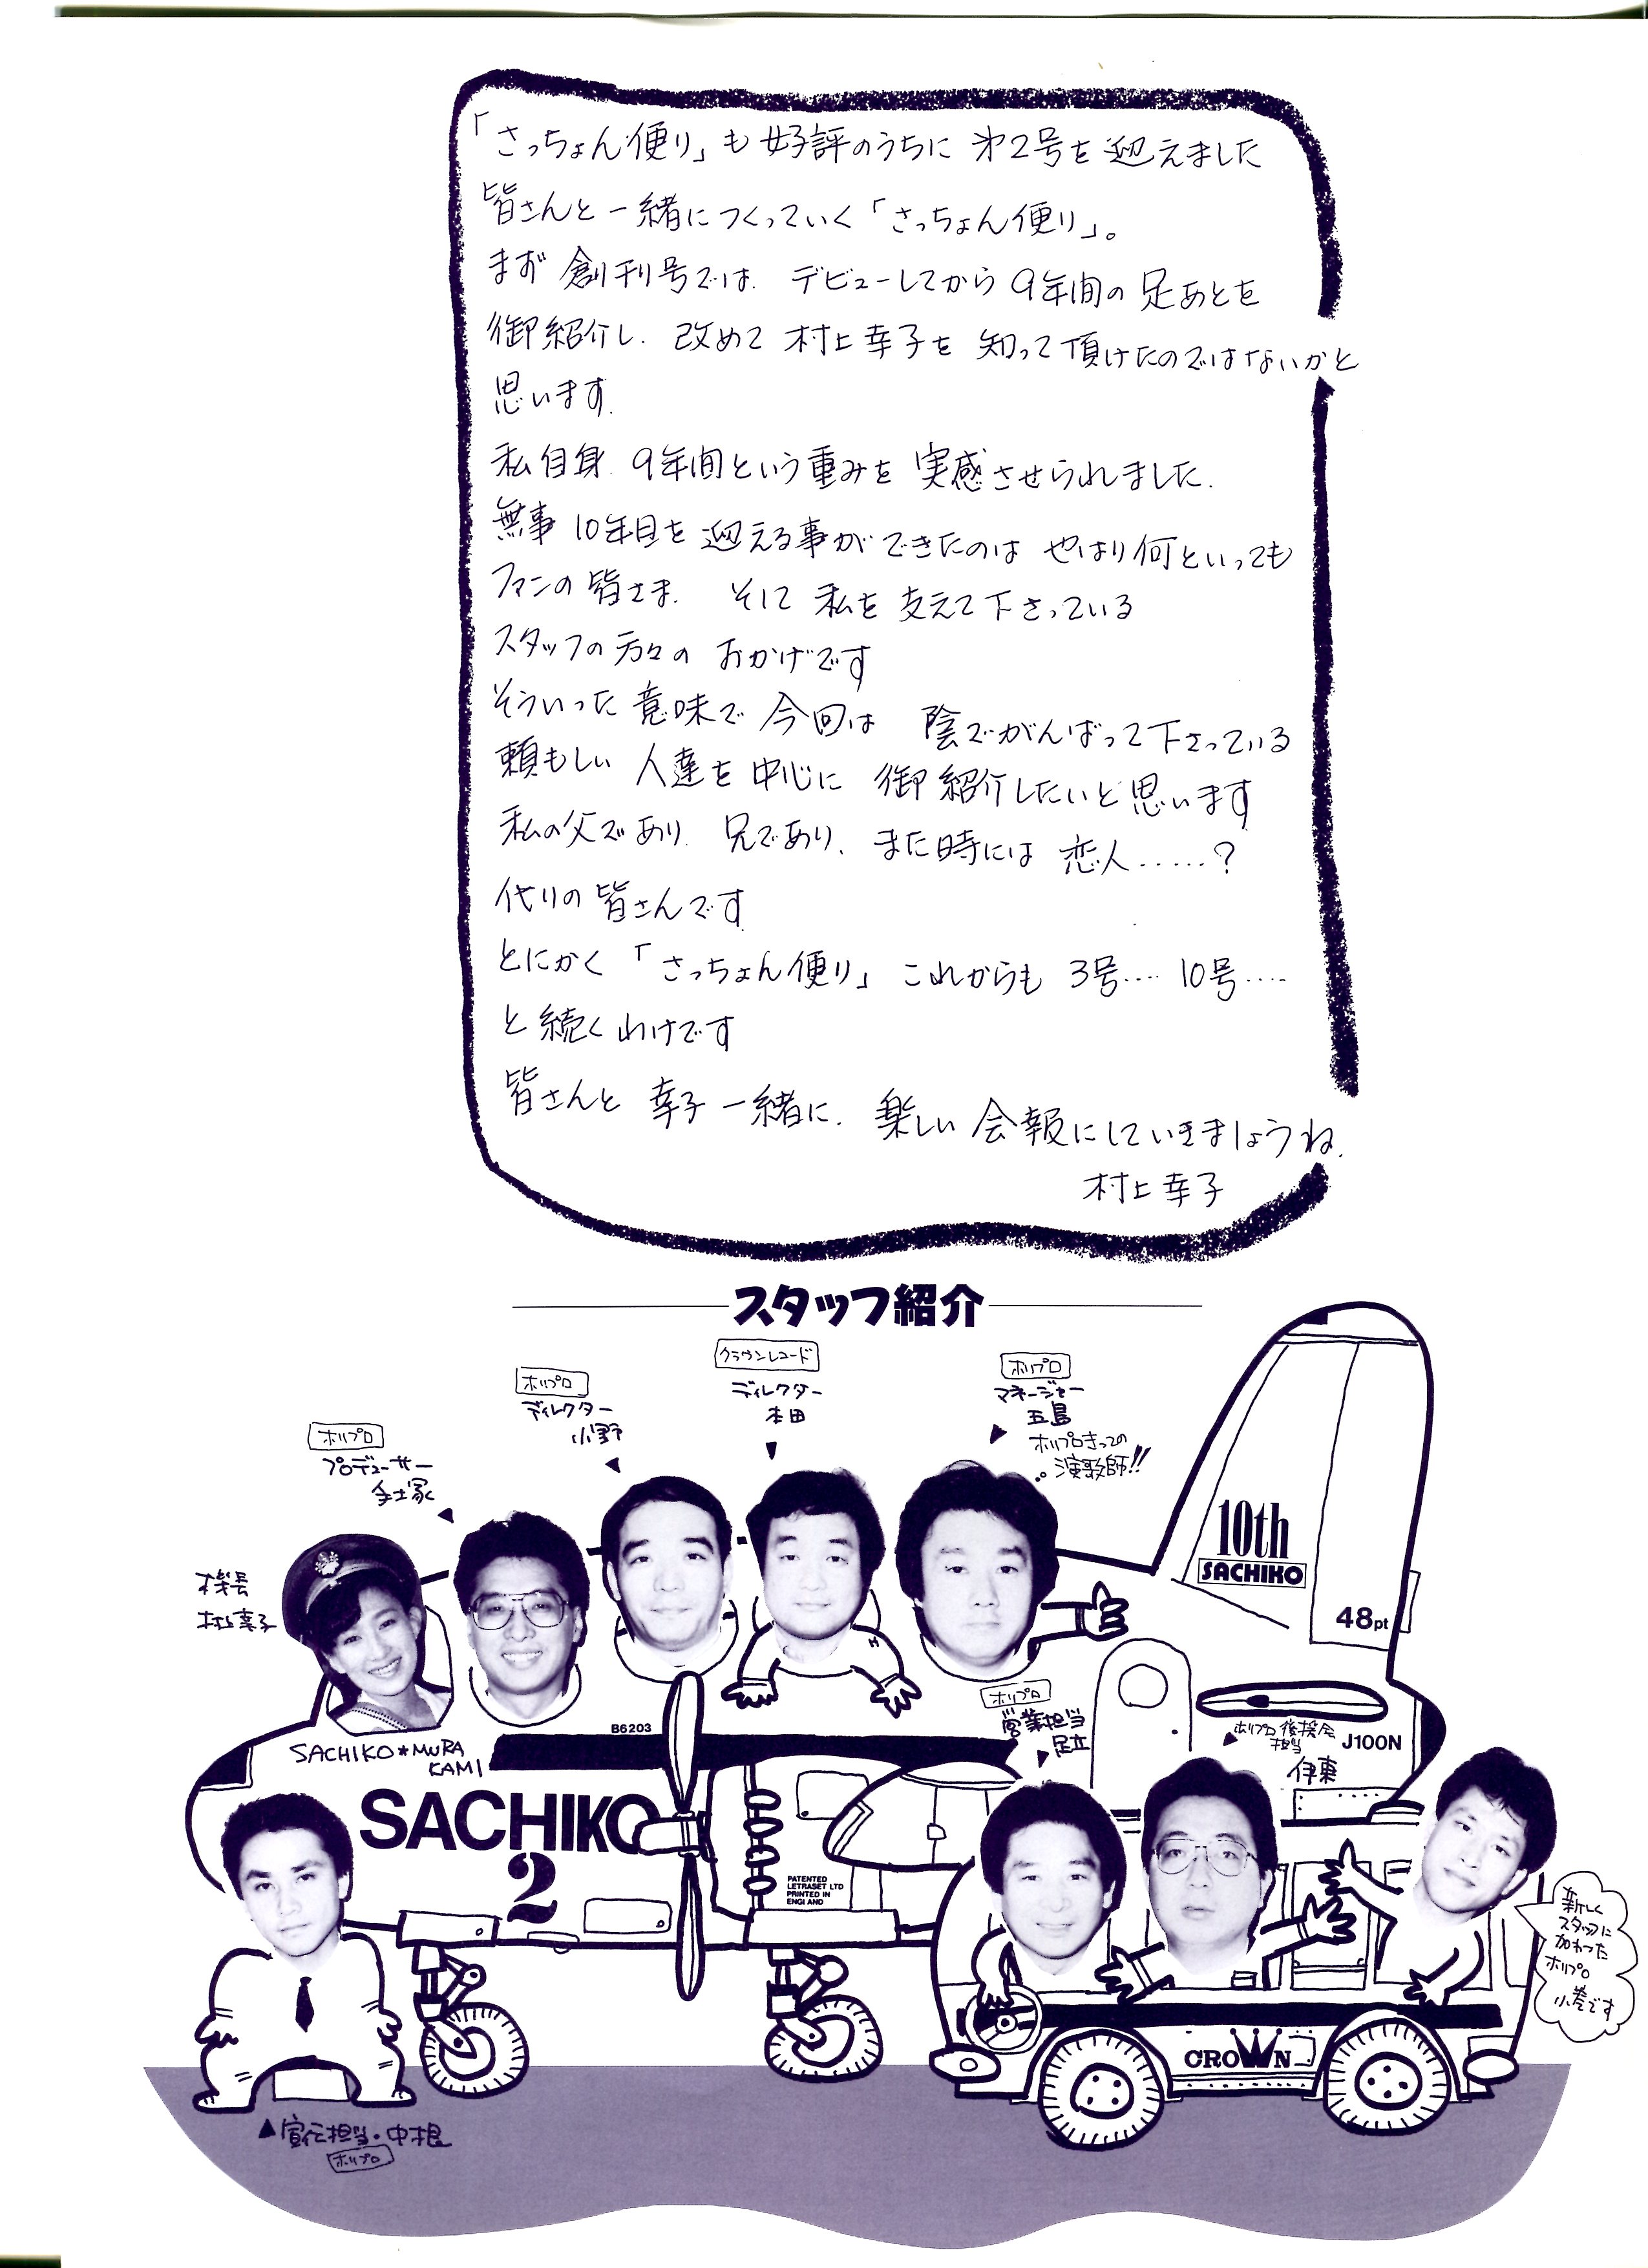 「さっちょん便り」も好評のうちに 第2号を迎えました
皆さんと一緒につくっていく「さっちょん便り」。
まず 創刊号では、デビューしてから 9年間の 足あとを
御紹介し、改めて 村上幸子を 知って頂けたのではないかと
思います。
私自身、9年間という重みを 実感させられました。
無事 10年目を 迎える事ができたのは やはり何といっても
ファンの皆さま、そして 私を 支えて下さっている
スタッフの方々の おかげです
そういった 意味で 今回は 陰でがんばって下さっている
頼もしい 人達を 中心に 御紹介したいと思います
私の父であり、兄であり、また時には 恋人……?
代りの皆さんです。
とにかく「さっちょん便り」これからも 3号…… 10号……
と続くわけです
皆さんと 幸子 一緒に、楽しい 会報にしていきましょうね。
村上幸子
スタッフ紹介
機長
村上幸子
ホリプロ
プロデューサー
手塚
ホリプロ
ディレクター
小野
クラウンレコード
ディレクター
本田
ホリプロ
マネージャー
五島
ホリプロきっての
演歌師!!
10th
SACHIKO
48pt
B6203
SACHIKO★MURA
KAMI
SACHIKO
2
PATENTED
LETRASET LTD
PRINTED IN
ENGLAND
ホリプロ
営業担当
足立
ホリプロ後援会
担当
伊東
J100N
新しく
スタッフに
加わった
ホリプロ
小巻です
CROWN
▲宣伝担当・中根
ホリプロ